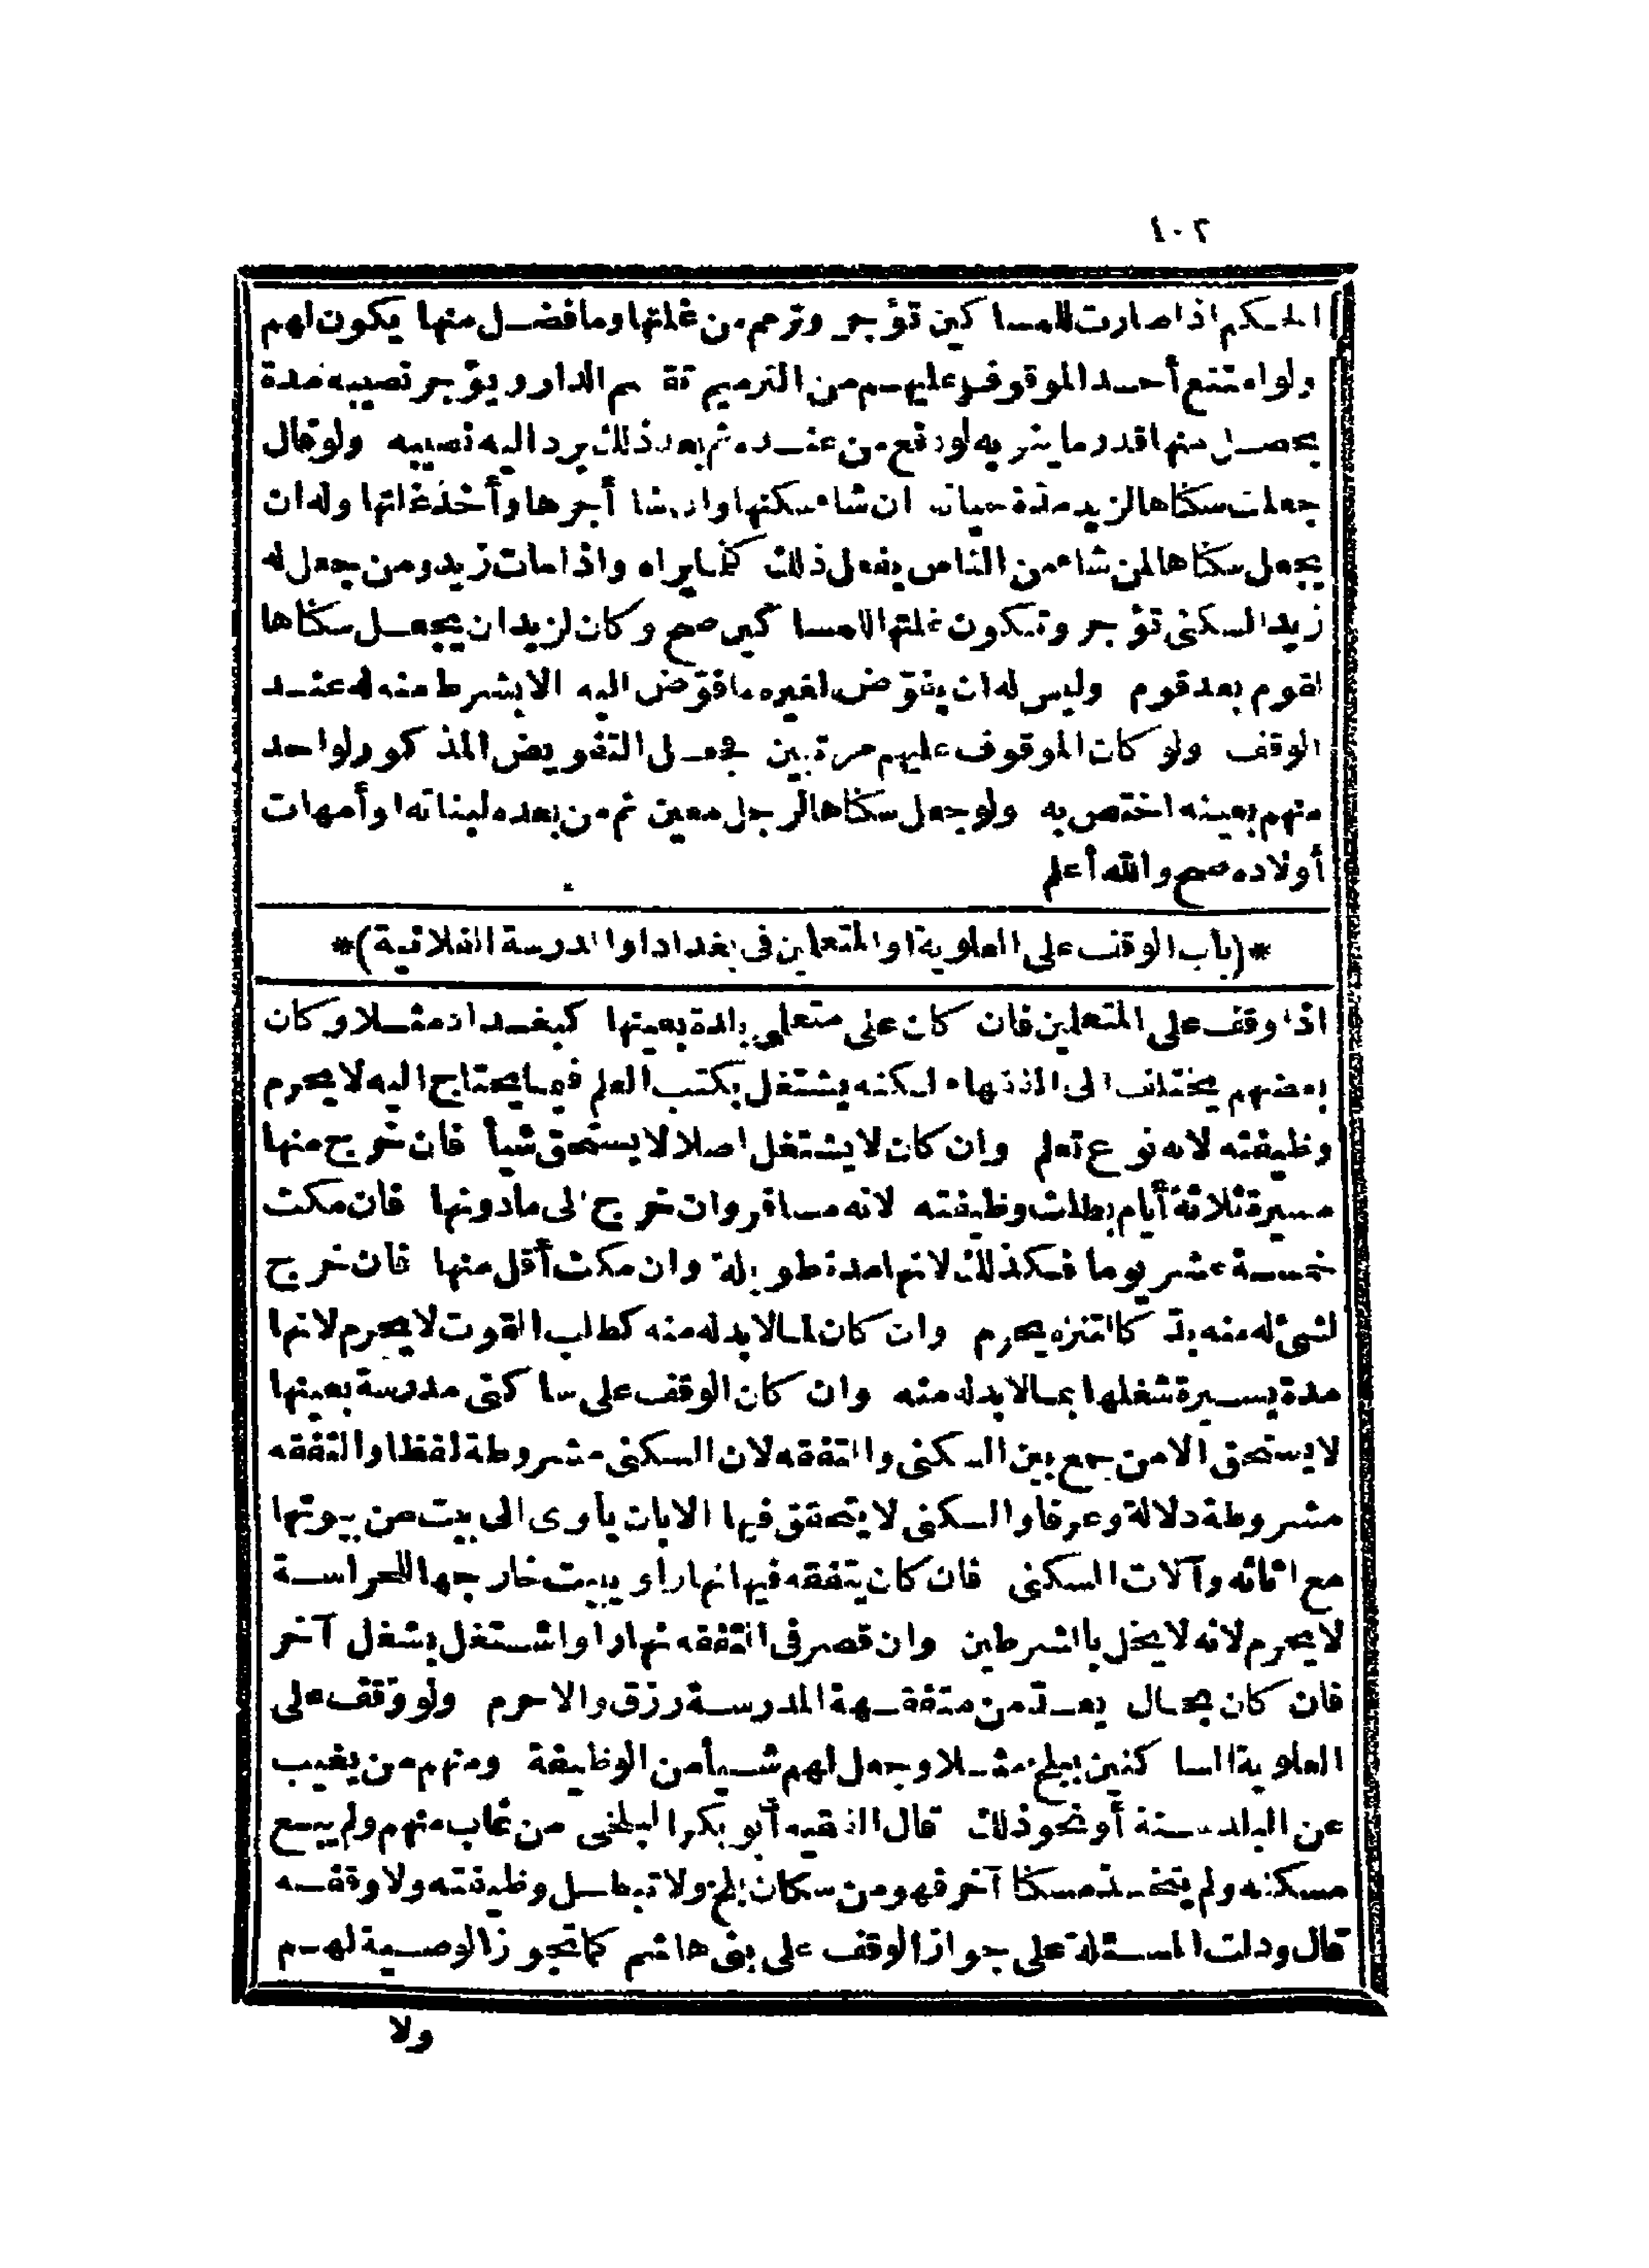 ١٠٢
الحكم اذا صارت للمساكين تؤجر وترمم من غلتها وما فضل منها يكون لهم
ولو امتنع أحد الموقوف عليهم من الترميم تقسم الدار ويؤجر نصيبه مدة
يحصل منها قدر ما ينوبه لو دفع من عنده ثم بعد ذلك يرد اليه نصيبه ولو قال
جعلت سكناها لزيد مدة حياته ان شاء سكنها وان شا أجرها وأخذ غلتها وله ان
يجعل سكناها لمن شاء من الناس يفعل ذلك كما يراه واذا مات زيد ومن جعل له
زيد السكنى تؤجر وتكون غلتها للمساكين صح وكان لزيد ان يجعل سكناها
لقوم بعد قوم وليس له ان يفوّض لغيره ما فوّض اليه الا بشرط منه له عند
الوقف ولو كان الموقوف عليهم مرتبين فجعل التفويض المذكور لواحد
منهم بعينه اختص به ولو جعل سكناها لرجل معين ثم من بعده لبناته او أمهات
أولاده صح والله أعلم
*(باب الوقف على العلوية او المتعلمين فى بغداد او المدرسة الفلانية)*
اذا وقف على المتعلمين فان كان على متعلمى بلدة بعينها كبغداد مثلا وكان
بعضهم يختلف الى الفقهاء لكنه يشتغل بكتب العلم فيما يحتاج اليه لا يحرم
وظيفته لانه نوع تعلم وان كان لا يشتغل اصلا لا يستحق شيأ فان خرج منها
مسيرة ثلاثة أيام بطلت وظيفته لانه مسافر وان خرج الى ما دونها فان مكث
خمسة عشر يوما فكذلك لانها مدة طويلة وان مكث أقل منها فان خرج
لشئ له منه بدّ كالتنزه يحرم وان كان لما لا بد له منه كطلب القوت لا يحرم لانها
مدة يسيرة شغلها بما لا بد له منه وان كان الوقف على ساكنى مدرسة بعينها
لا يستحق الا من جمع بين السكنى والتفقه لان السكنى مشروطة لفظا والتفقه
مشروطة دلالة وعرفا والسكنى لا يتحقق فيها الا بان يأوى الى بيت من بيوتها
مع اثاثه وآلات السكنى فان كان يتفقه فيها نهارا ويبيت خارجها للحراسة
لا يحرم لانه لا يخل بالشرطين وان قصر فى التفقه نهارا واشتغل بشغل آخر
فان كان بحال يعدّ من متفقهة المدرسة رزق والا حرم ولو وقف على
العلوية الساكنين ببلخ مثلا وجعل لهم شيأ من الوظيفة ومنهم من يغيب
عن البلد سنة أو نحو ذلك قال الفقيه أبو بكر البلخى من غاب منهم ولم يبع
مسكنه ولم يتخذ مسكنا آخر فهو من سكان بلخ ولا تبطل وظيفته ولا وقفه
قال ودلت المسئلة على جواز الوقف على بنى هاشم كما تجوز الوصية لهم
ولا